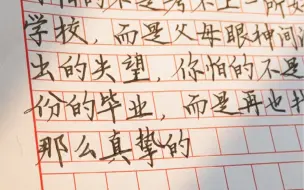 的不是考不上一所
学校，而是父母眼神间
出的失望，你怕的不是
份的毕业，而是再也
那么真挚的